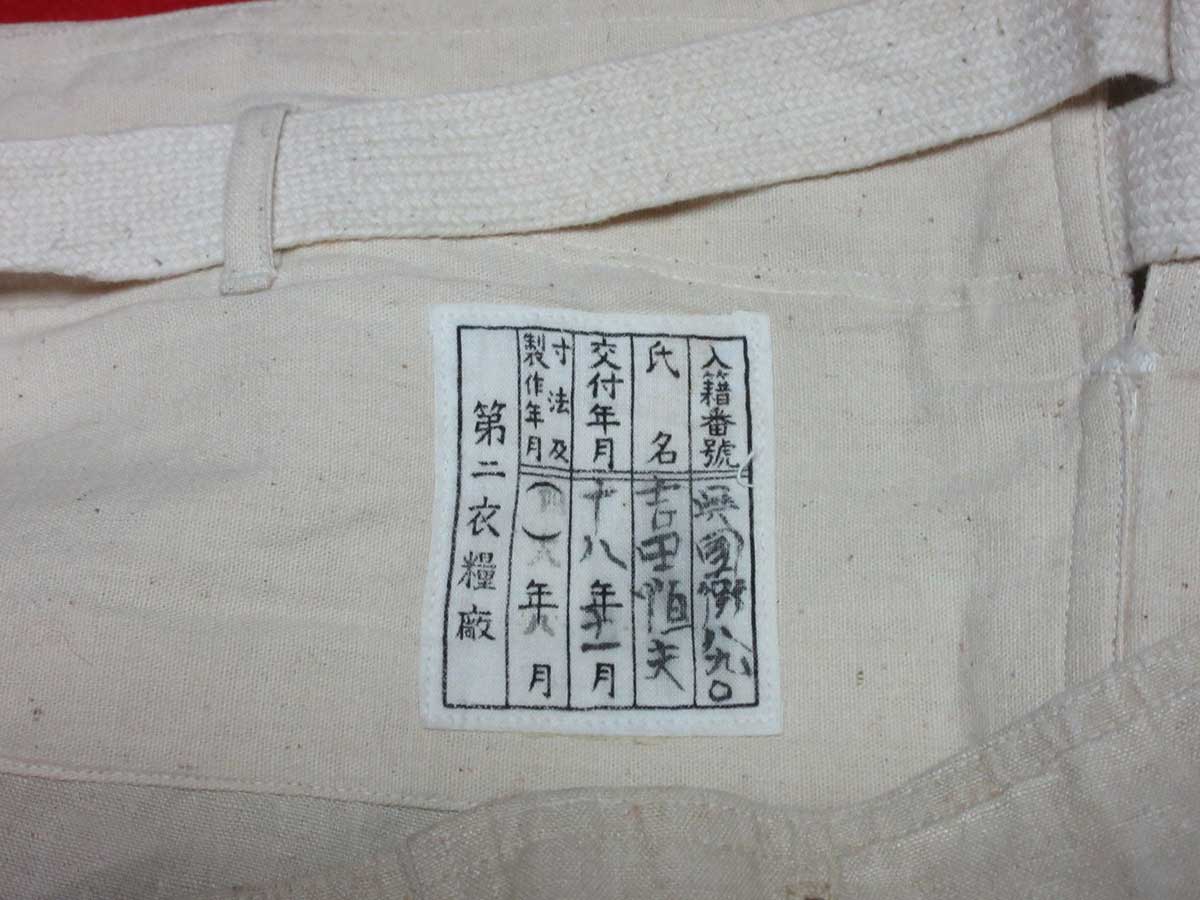 入籍番號 呉国衛八九〇
氏名 吉田恒夫
交付年月 十八年十一月
寸法及製作年月 (四) 年八月
第二衣糧廠